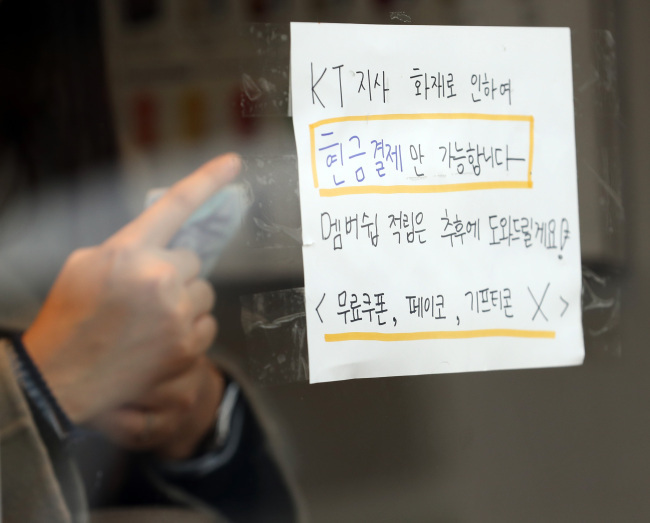 KT 지사 화재로 인하여
현금결제만 가능합니다
멤버쉽 적립은 추후에 도와드릴게요!
< 무료쿠폰, 페이코, 기프티콘 X >